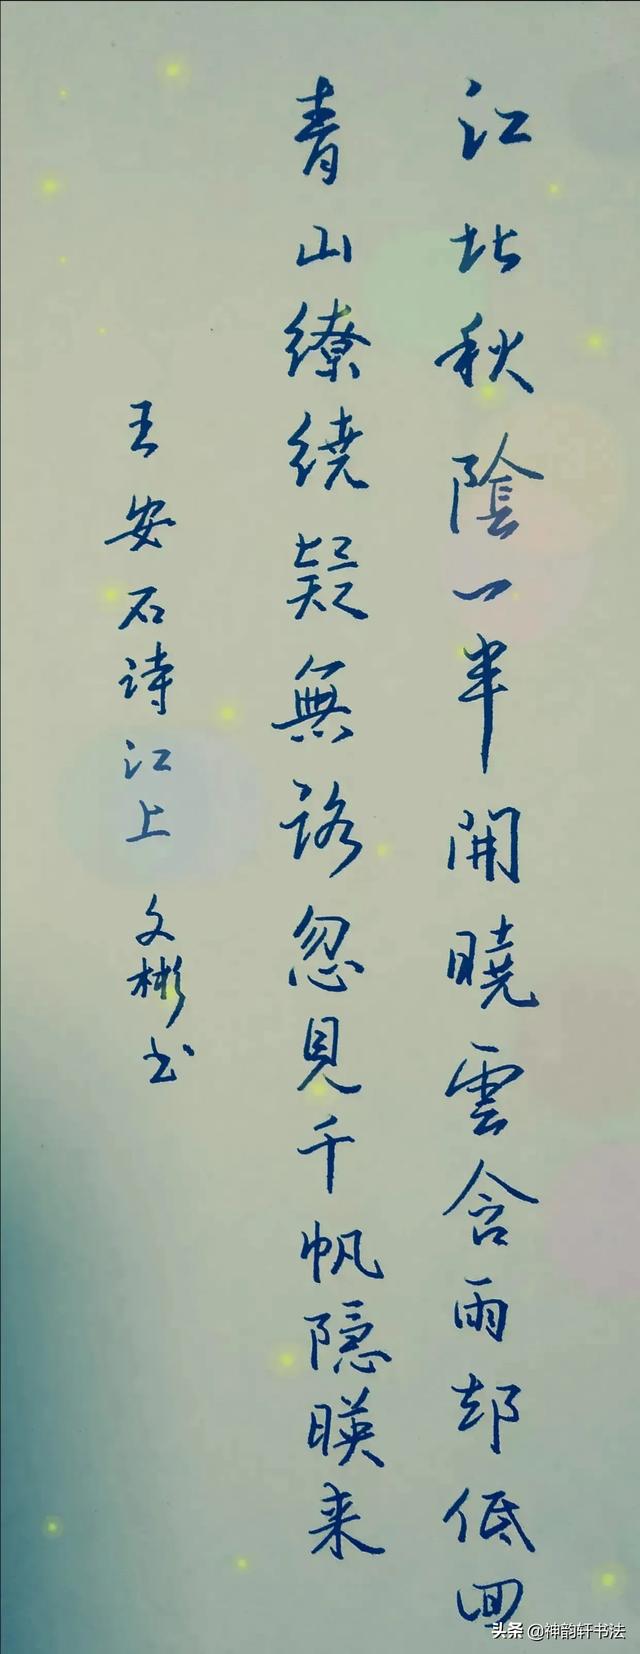 江北秋陰一半開曉雲含雨却低回
青山繚繞疑無路忽見千帆隱暎来
王安石诗江上 文彬书
头条 @神韵轩书法